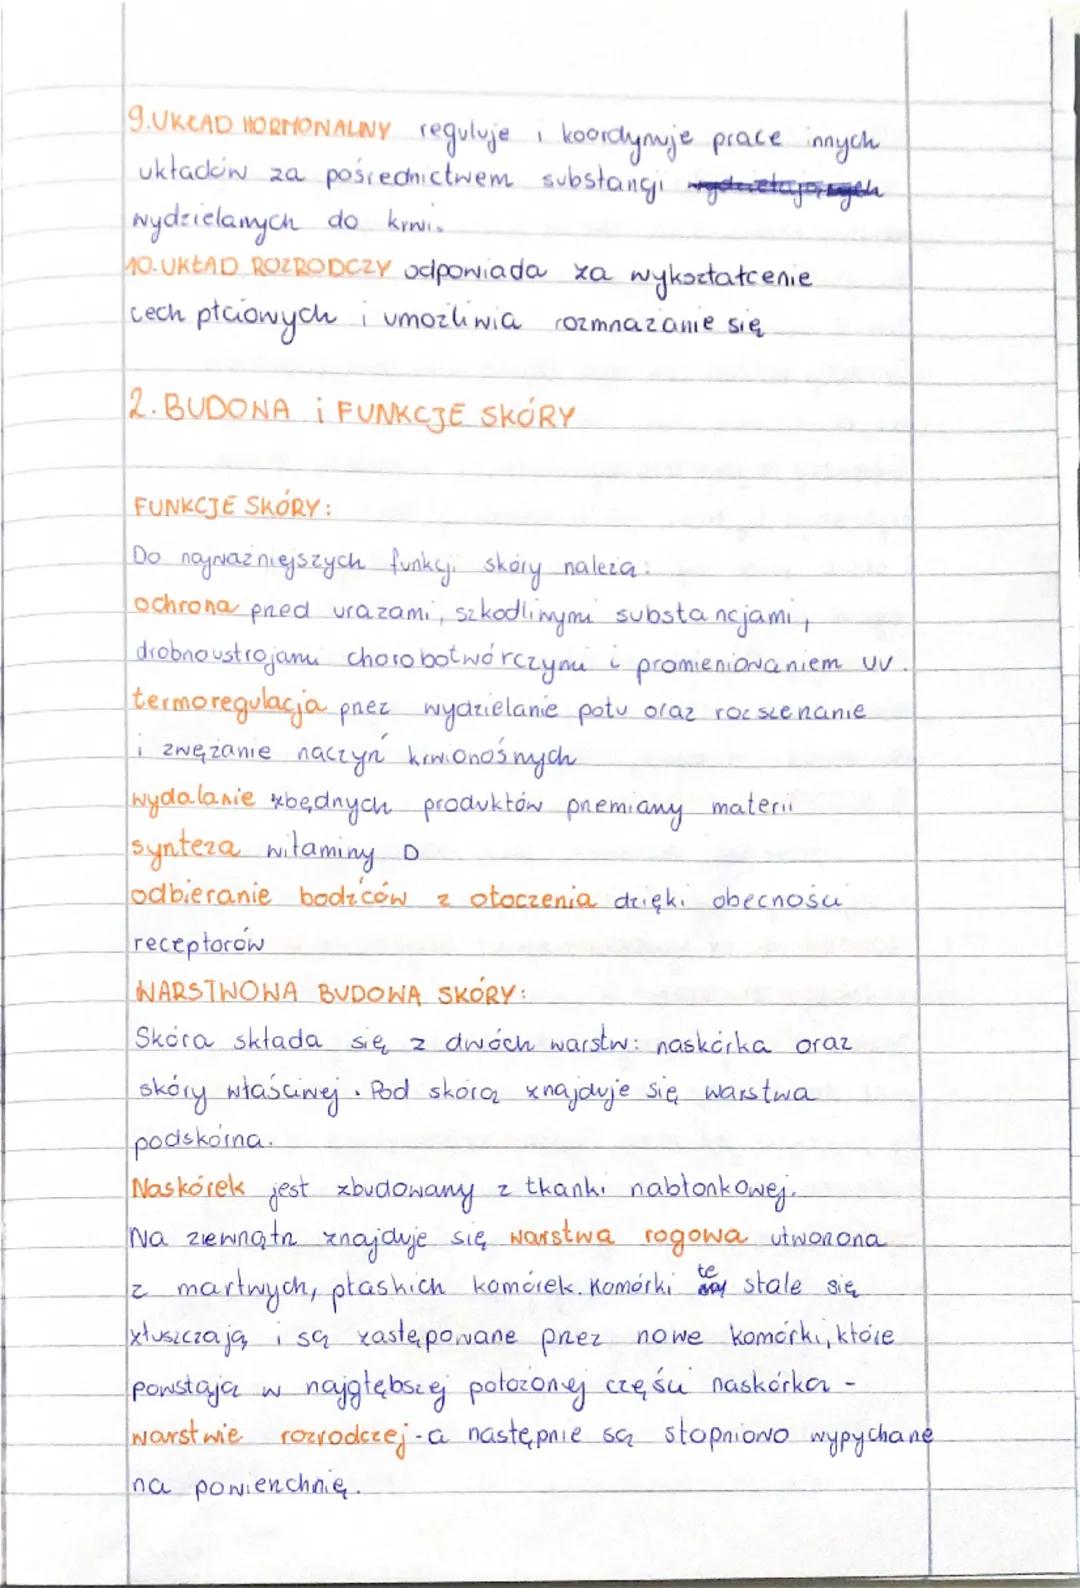 9.UKŁAD HORMONALNY reguluje i koordynuje prace innych
układów za pośrednictwem substancji
wydzielanych do krwi.
10.UKŁAD ROZRODCZY odpowiada za wykształcenie
cech płciowych i umożliwia rozmnażanie się
2. BUDOWA i FUNKCJE SKÓRY
FUNKCJE SKÓRY:
Do najważniejszych funkcji skóry należą:
ochrona przed urazami, szkodliwymi substancjami,
drobnoustrojami chorobotwórczymi i promieniowaniem UV.
termoregulacja przez wydzielanie potu oraz rozszerzanie
i zwężanie naczyń krwionośnych
wydalanie zbędnych produktów przemiany materii
synteza witaminy D
odbieranie bodźców z otoczenia dzięki obecności
receptorów
WARSTWOWA BUDOWA SKÓRY:
Skóra składa się z dwóch warstw: naskórka oraz
skóry właściwej. Pod skórą znajduje się warstwa
podskórna.
Naskórek jest zbudowany z tkanki nabłonkowej.
Na zewnątrz znajduje się warstwa rogowa utworzona
z martwych, płaskich komórek. Komórki te stale się
złuszczają i są zastępowane przez nowe komórki, które
powstają w najgłębszej położonej części naskórka -
warstwie rozrodczej - a następnie są stopniowo wypychane
na powierzchnię.